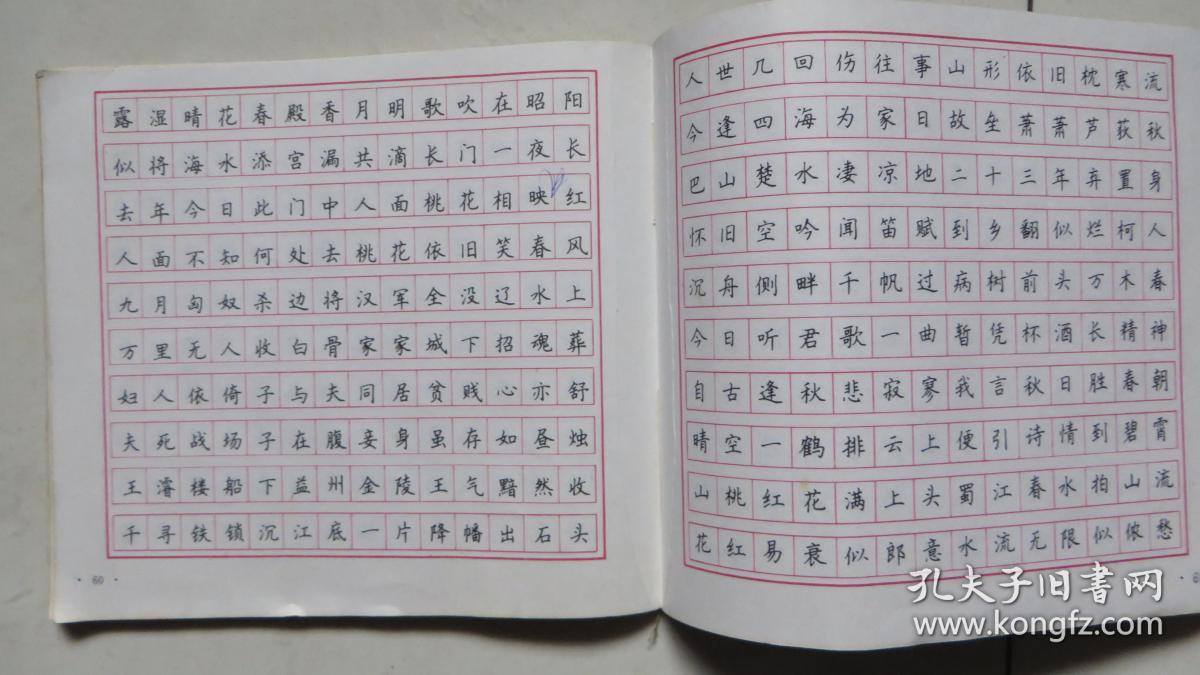 露湿晴花春殿香月明歌吹在昭阳
似将海水添宫漏共滴长门一夜长
去年今日此门中人面桃花相映红
人面不知何处去桃花依旧笑春风
九月匈奴杀边将汉军全没辽水上
万里无人收白骨家家城下招魂葬
妇人依倚子与夫同居贫贱心亦舒
夫死战场子在腹妾身虽存如昼烛
王濬楼船下益州金陵王气黯然收
千寻铁锁沉江底一片降幡出石头
· 60 ·
人世几回伤往事山形依旧枕寒流
今逢四海为家日故垒萧萧芦荻秋
巴山楚水凄凉地二十三年弃置身
怀旧空吟闻笛赋到乡翻似烂柯人
沉舟侧畔千帆过病树前头万木春
今日听君歌一曲暂凭杯酒长精神
自古逢秋悲寂寥我言秋日胜春朝
晴空一鹤排云上便引诗情到碧霄
山桃红花满上头蜀江春水拍山流
花红易衰似郎意水流无限似侬愁
孔夫子旧书网
www.kongfz.com